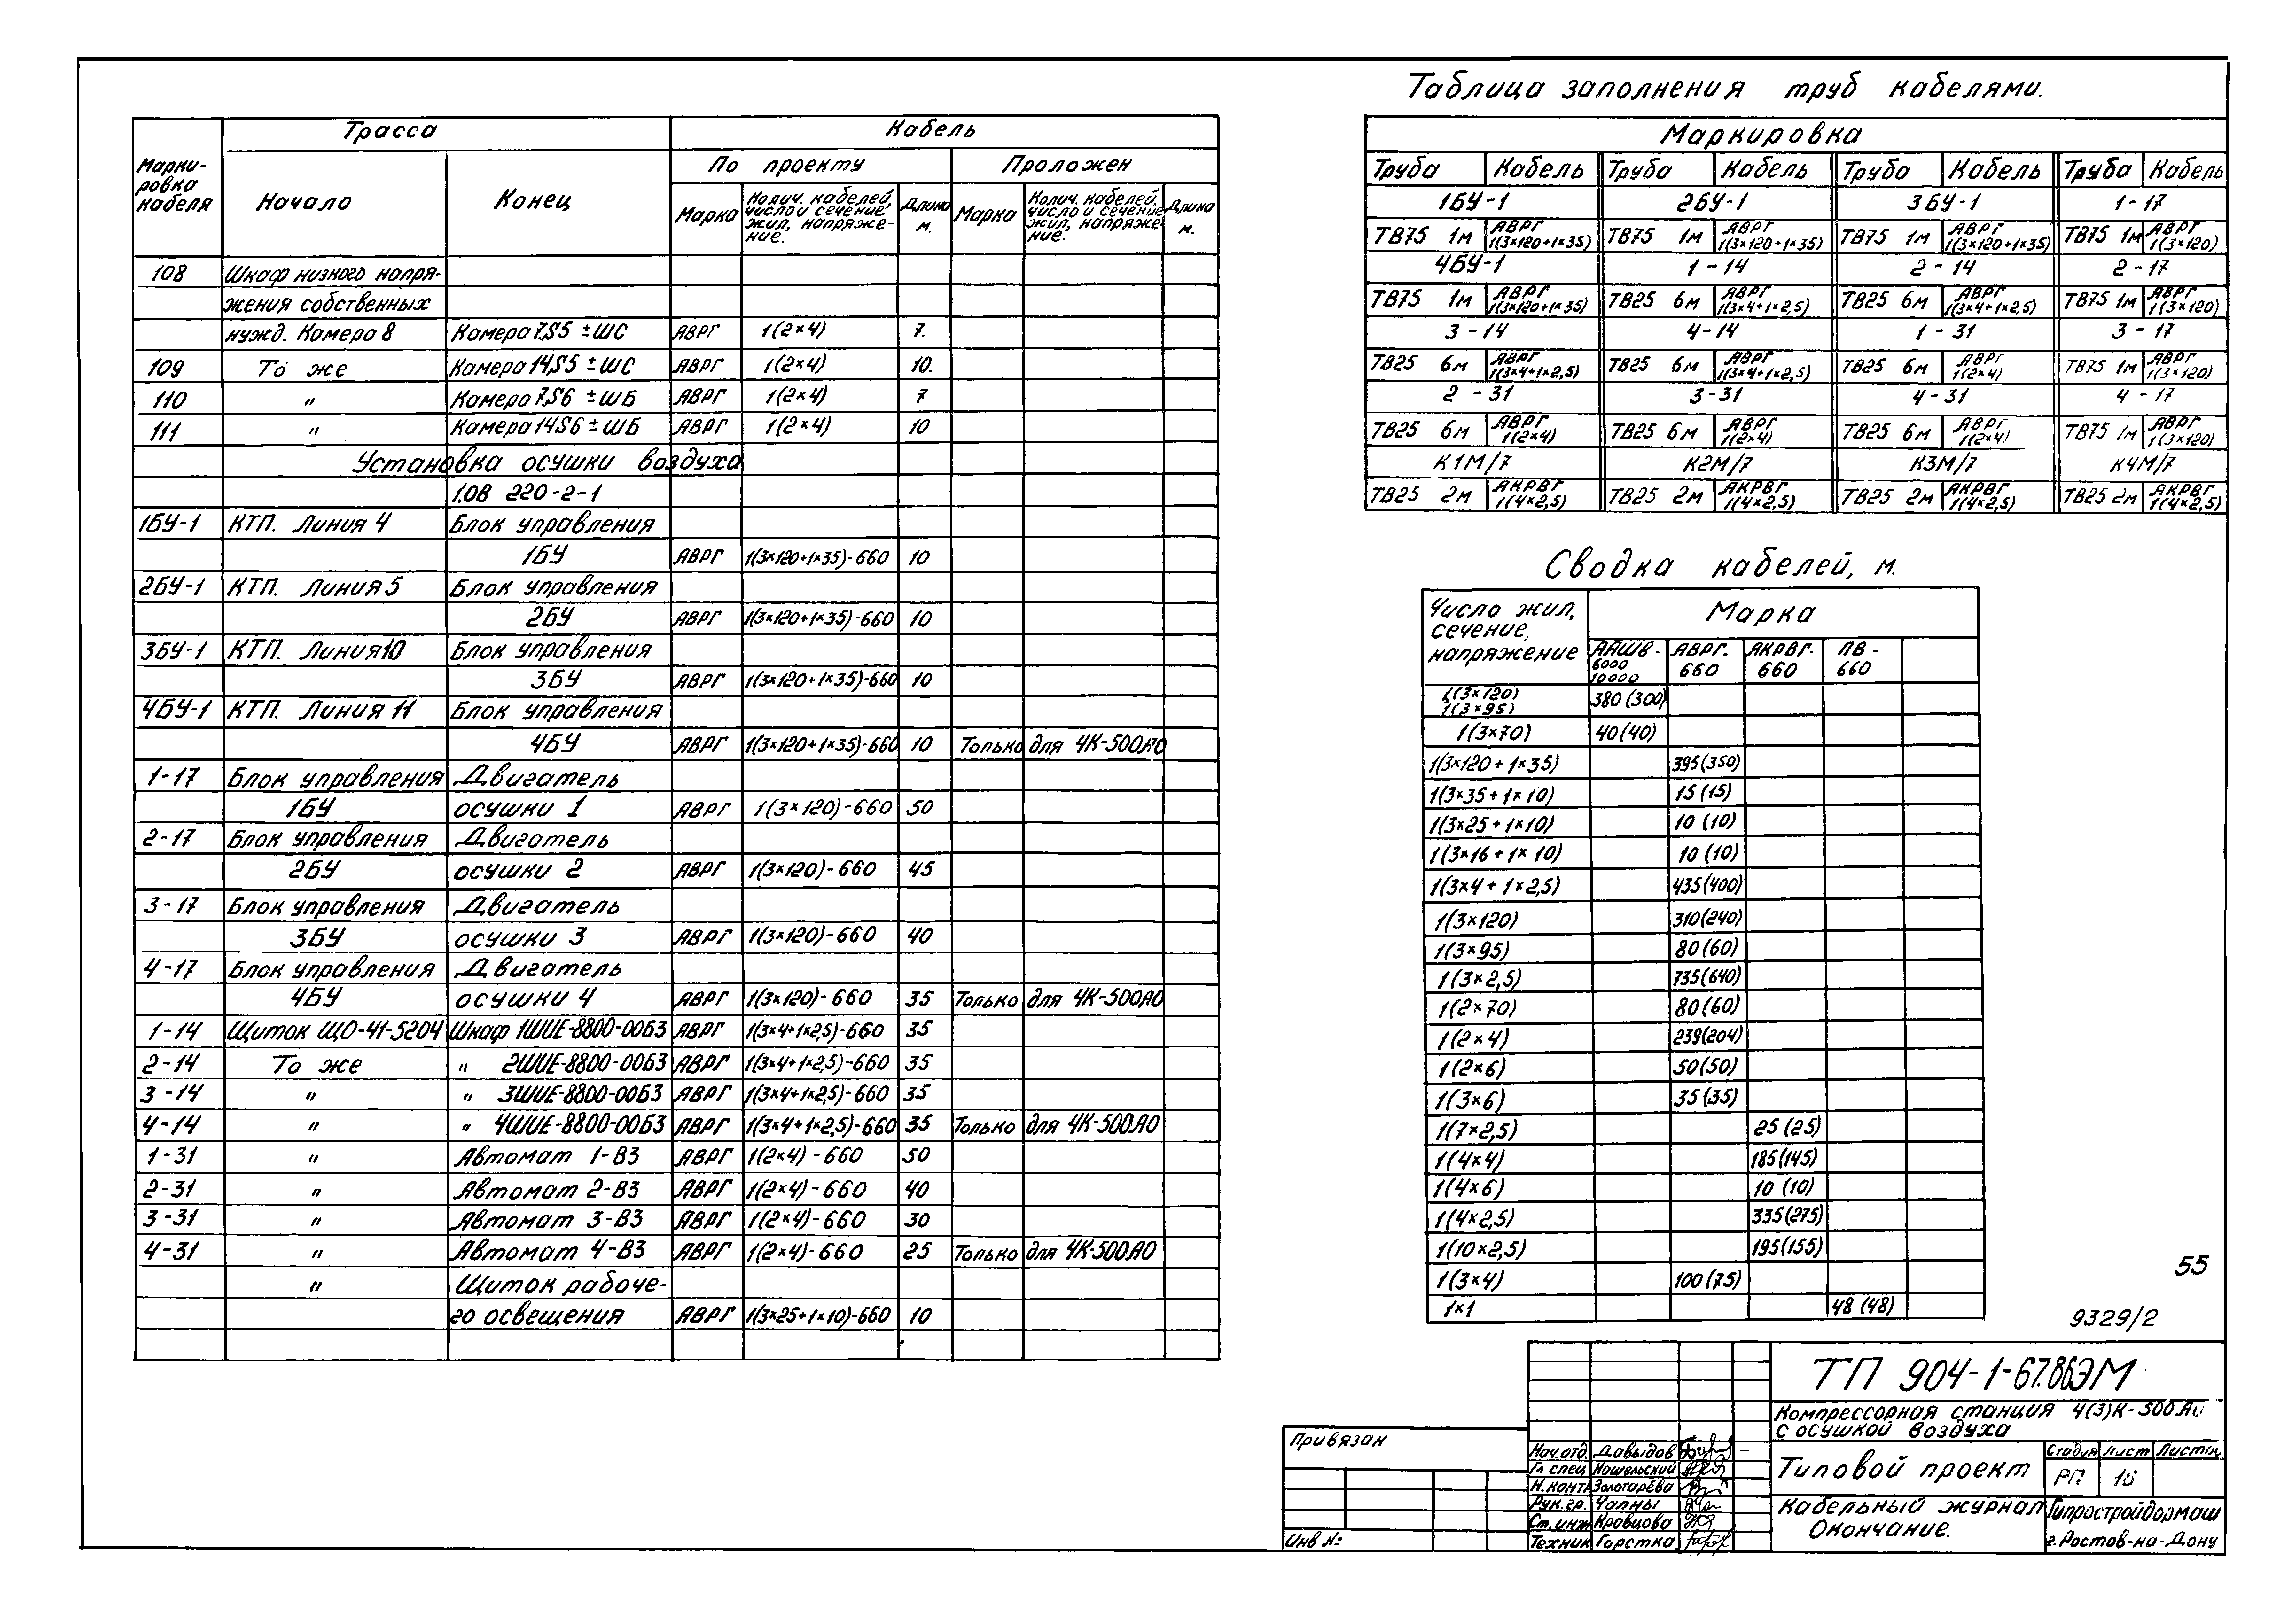 Марки-
ровка
кабеля
Трасса
Кабель
Начало
Конец
По проекту
Проложен
Марка
Колич. кабелей,
число и сечение,
жил, напряже-
ние.
Длина
м.
Марка
Колич. кабелей,
число и сечение
жил, напряже-
ние.
Длина
м.
108 Шкаф низкого напря-
жения собственных
нужд. Камера 8 Камера 7.S5 ±ШС АВРГ 1(2×4) 7.
109 То же Камера 14.S5 ±ШС АВРГ 1(2×4) 10.
110 " Камера 7.S6 ±ШБ АВРГ 1(2×4) 7
111 " Камера 14.S6 ±ШБ АВРГ 1(2×4) 10
Установка осушки воздуха
1.ОВ 220-2-1
1БУ-1 КТП. Линия 4 Блок управления
1БУ АВРГ 1(3×120+1×35)-660 10
2БУ-1 КТП. Линия 5 Блок управления
2БУ АВРГ 1(3×120+1×35)-660 10
3БУ-1 КТП. Линия 10 Блок управления
3БУ АВРГ 1(3×120+1×35)-660 10
4БУ-1 КТП. Линия 11 Блок управления
4БУ АВРГ 1(3×120+1×35)-660 10 Только для 4К-500АО
1-17 Блок управления Двигатель
1БУ осушки 1 АВРГ 1(3×120)-660 50
2-17 Блок управления Двигатель
2БУ осушки 2 АВРГ 1(3×120)-660 45
3-17 Блок управления Двигатель
3БУ осушки 3 АВРГ 1(3×120)-660 40
4-17 Блок управления Двигатель
4БУ осушки 4 АВРГ 1(3×120)-660 35 Только для 4К-500АО
1-14 Щиток ЩО-41-5204 Шкаф 1ШUЕ-8800-00Б3 АВРГ 1(3×4+1×2,5)-660 35
2-14 То же " 2ШUЕ-8800-00Б3 АВРГ 1(3×4+1×2,5)-660 35
3-14 " " 3ШUЕ-8800-00Б3 АВРГ 1(3×4+1×2,5)-660 35
4-14 " " 4ШUЕ-8800-00Б3 АВРГ 1(3×4+1×2,5)-660 35 Только для 4К-500АО
1-31 " Автомат 1-В3 АВРГ 1(2×4)-660 50
2-31 " Автомат 2-В3 АВРГ 1(2×4)-660 40
3-31 " Автомат 3-В3 АВРГ 1(2×4)-660 30
4-31 " Автомат 4-В3 АВРГ 1(2×4)-660 25 Только для 4К-500АО
" Щиток рабоче-
го освещения АВРГ 1(3×25+1×10)-660 10
Таблица заполнения труб кабелями.
Маркировка
Труба Кабель Труба Кабель Труба Кабель Труба Кабель
1БУ-1 2БУ-1 3БУ-1 1-17
ТВ75 1м АВРГ 1(3×120+1×35) ТВ75 1м АВРГ 1(3×120+1×35) ТВ75 1м АВРГ 1(3×120+1×35) ТВ75 1м АВРГ 1(3×120)
4БУ-1 1-14 2-14 2-17
ТВ75 1м АВРГ 1(3×120+1×35) ТВ25 6м АВРГ 1(3×4+1×2,5) ТВ25 6м АВРГ 1(3×4+1×2,5) ТВ75 1м АВРГ 1(3×120)
3-14 4-14 1-31 3-17
ТВ25 6м АВРГ 1(3×4+1×2,5) ТВ25 6м АВРГ 1(3×4+1×2,5) ТВ25 6м АВРГ 1(2×4) ТВ75 1м АВРГ 1(3×120)
2-31 3-31 4-31 4-17
ТВ25 6м АВРГ 1(2×4) ТВ25 6м АВРГ 1(2×4) ТВ25 6м АВРГ 1(2×4) ТВ75 1м АВРГ 1(3×120)
К1М/7 К2М/7 К3М/7 К4М/7
ТВ25 2м АКРВГ 1(4×2,5) ТВ25 2м АКРВГ 1(4×2,5) ТВ25 2м АКРВГ 1(4×2,5) ТВ25 2м АКРВГ 1(4×2,5)
Сводка кабелей, м.
Число жил,
сечение,
напряжение
Марка
ААШВ-
6000
10000
АВРГ-
660
АКРВГ-
660
ПВ-
660
1(3×120)
1(3×95) 380(300)
1(3×70) 40(40)
1(3×120+1×35) 395(350)
1(3×35+1×10) 15(15)
1(3×25+1×10) 10(10)
1(3×16+1×10) 10(10)
1(3×4+1×2,5) 435(400)
1(3×120) 310(240)
1(3×95) 80(60)
1(3×2,5) 735(640)
1(2×70) 80(60)
1(2×4) 239(204)
1(2×6) 50(50)
1(3×6) 35(35)
1(7×2,5) 25(25)
1(4×4) 185(145)
1(4×6) 10(10)
1(4×2,5) 335(275)
1(10×2,5) 195(155)
1(3×4) 100(75)
1×1 48(48)
55
9329/2
ТП 904-1-67.86ЭМ
Компрессорная станция 4(3)К-500АО
с осушкой воздуха
Типовой проект
Стадия Лист Листов
РП 16
Кабельный журнал
Окончание.
Гипростройдормаш
г.Ростов-на-Дону
Привязан
Инв №
Нач.отд. Давыдов
Гл спец Кошельский
Н.контр Золотарёва
Рук.гр. Чапны
Ст. инж Кравцова
Техник Горстка